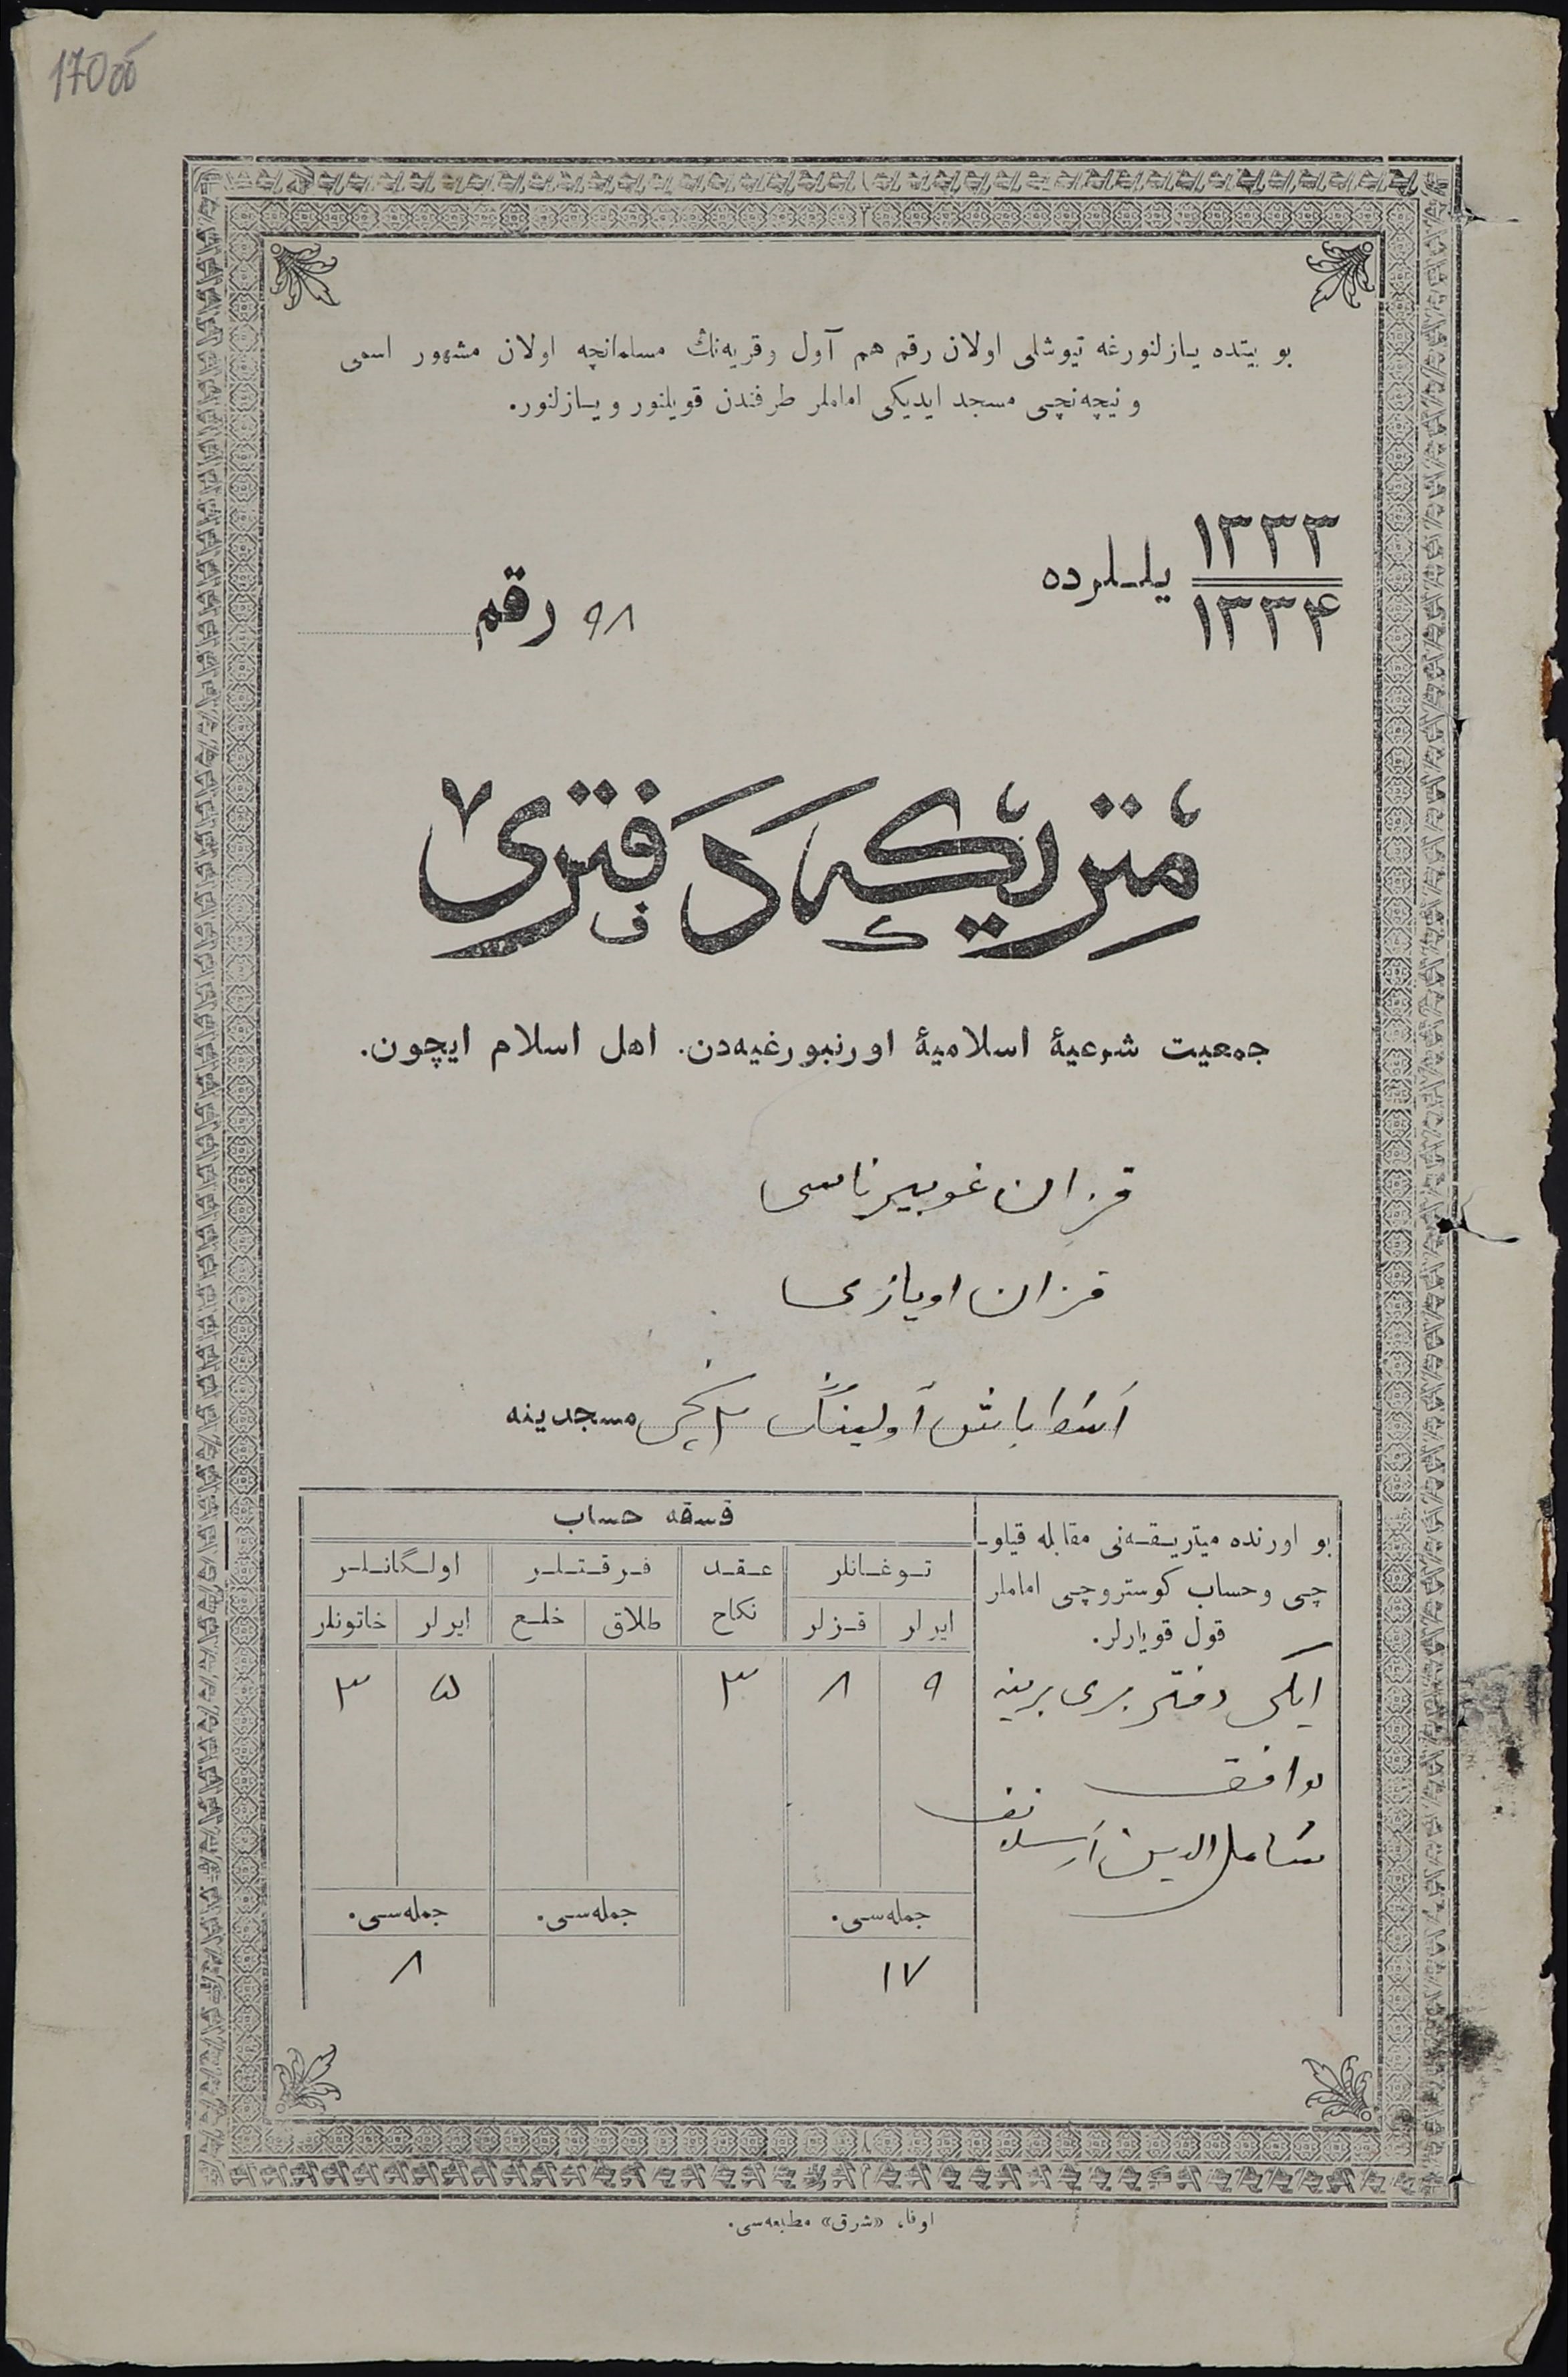 170об
بو بیتده یازلنورغه تیوشلی اولان رقم هم آول وقریه‌نڭ مسلمانچه اولان مشهور اسمی
ونیچه‌نچی مسجد ایدیکی اماملر طرفندن قویلنور ویازلنور.
۱۳۳۳
۱۳۳۴
یللرده
۹۸ رقم
متریکه دفتری
جمعیت شرعیۀ اسلامیۀ اورنبورغیه‌دن. اهل اسلام ایچون.
قزان غوبیرناسی
قزان اویازی
باش آولینڭ ۳نچی مسجدینه
بو اورنده میتریقه‌نی مقابله قیلو-
چی وحساب کوستروچی اماملر
قول قویارلر.
ایکی دفتر بری برینه
موافق
شامل الدین ارسلانف
قسقه حساب
توغانلر
عقد نکاح
فرقتلر
اولگانلر
ایرلر
قزلر
طلاق
خلع
ایرلر
خاتونلر
۹
۸
۳
۵
۳
جمله‌سی.
جمله‌سی.
جمله‌سی.
۱۷
۸
اوفا، «شرق» مطبعه‌سی.